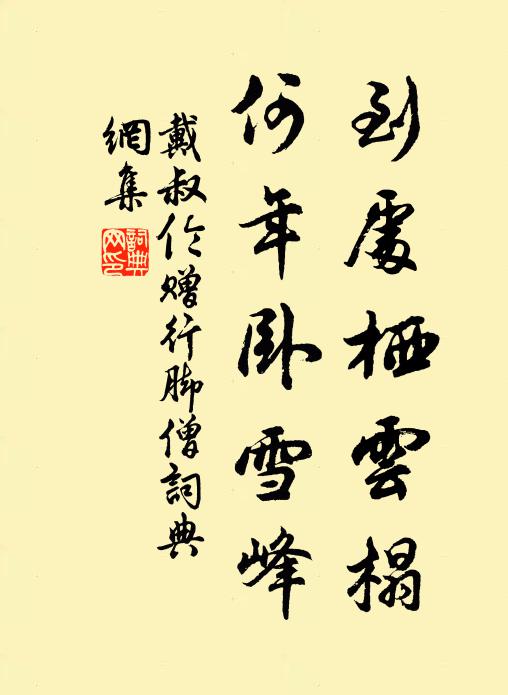 到處栖雲榻
何年卧雪峰
戴叔伦赠行脚僧詞典
網集
詞典
网印